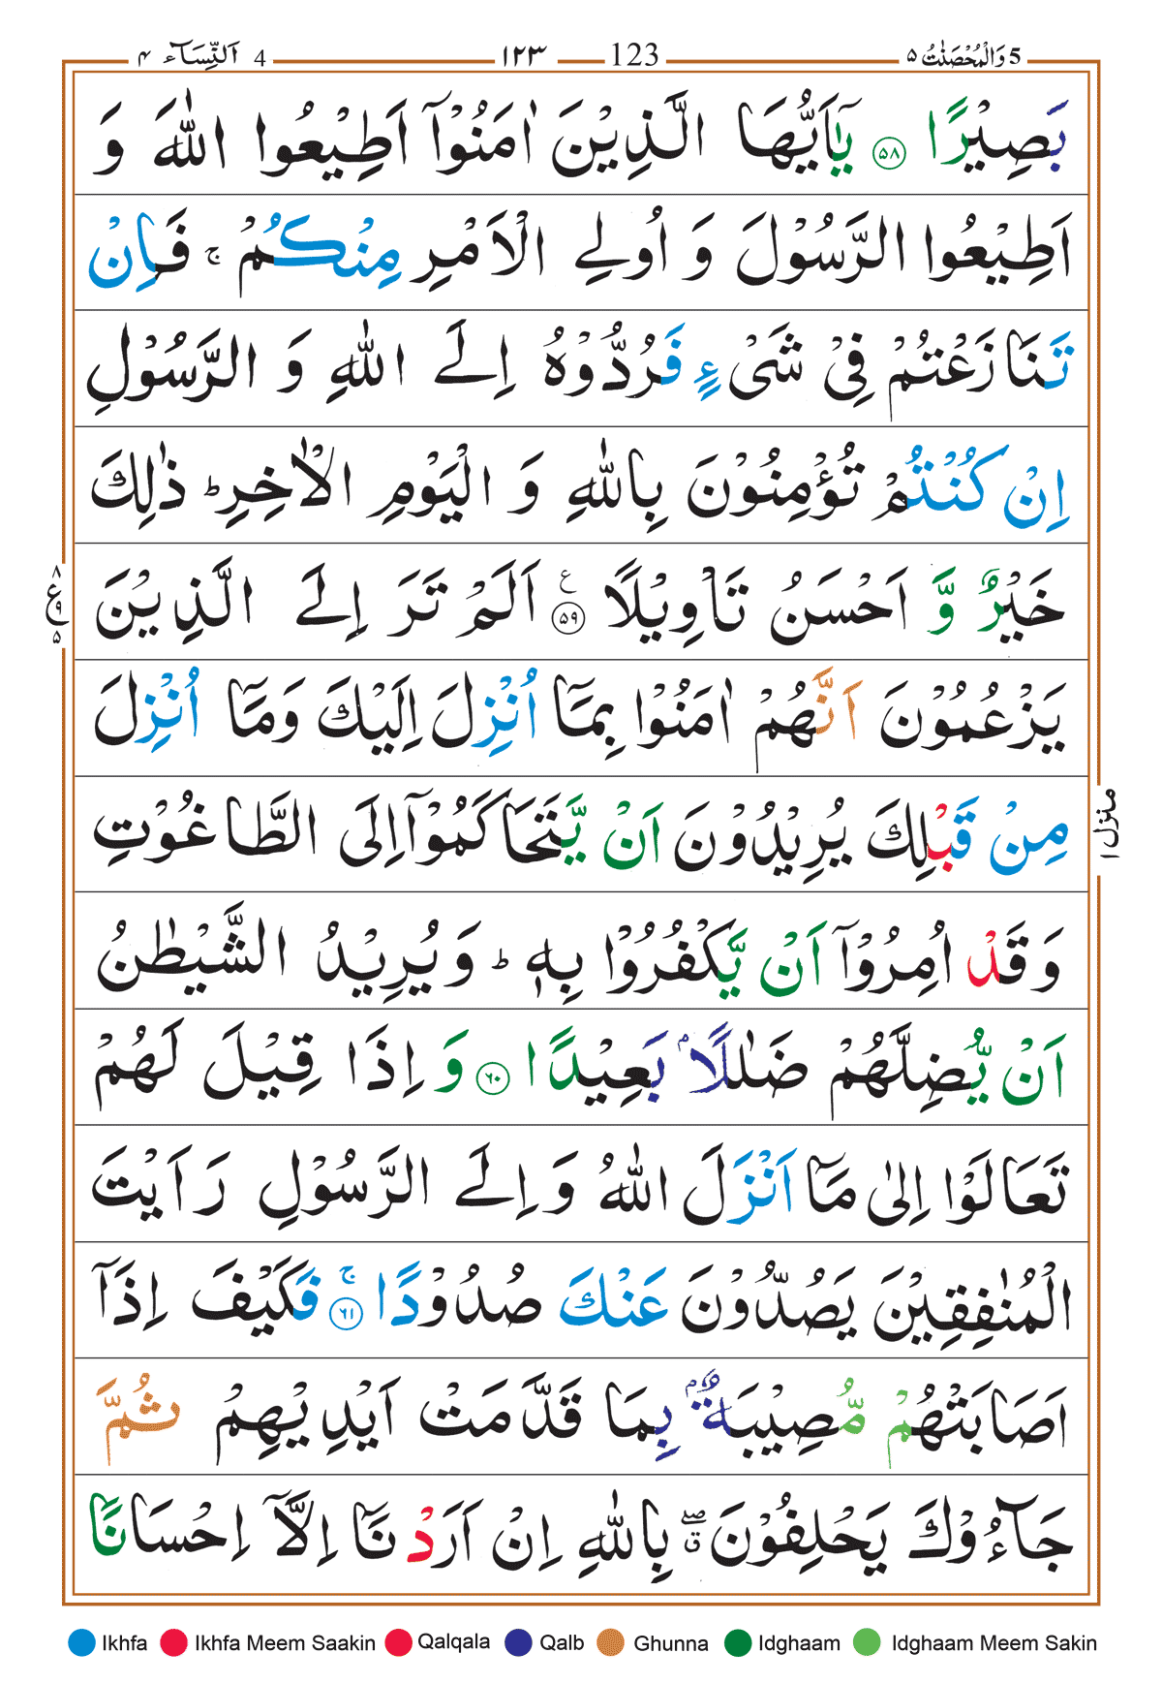 5 وَالْمُحْصَنٰتُ ۵ 123 ۱۲۳ 4 اَلنِّسَآء ۴
بَصِيْرًا ۵۸ يٰۤاَيُّهَا الَّذِيْنَ اٰمَنُوْۤا اَطِيْعُوا اللّٰهَ وَ
اَطِيْعُوا الرَّسُوْلَ وَ اُولِے الْاَمْرِ مِنْكُمْ ۚ فَاِنْ
تَنَازَعْتُمْ فِيْ شَيْءٍ فَرُدُّوْهُ اِلَے اللّٰهِ وَ الرَّسُوْلِ
اِنْ كُنْتُمْ تُؤْمِنُوْنَ بِاللّٰهِ وَ الْيَوْمِ الْاٰخِرِ ؕ ذٰلِكَ
خَيْرٌ وَّ اَحْسَنُ تَاْوِيْلًا ۵۹ ع اَلَمْ تَرَ اِلَے الَّذِيْنَ
۸ ع ۹ ۵
يَزْعُمُوْنَ اَنَّهُمْ اٰمَنُوْا بِمَاۤ اُنْزِلَ اِلَيْكَ وَمَاۤ اُنْزِلَ
مِنْ قَبْلِكَ يُرِيْدُوْنَ اَنْ يَّتَحَاكَمُوْۤا اِلَى الطَّاغُوْتِ
منزل ۱
وَقَدْ اُمِرُوْۤا اَنْ يَّكْفُرُوْا بِهٖ ؕ وَيُرِيْدُ الشَّيْطٰنُ
اَنْ يُّضِلَّهُمْ ضَلٰلًاۢ بَعِيْدًا ۶۰ وَ اِذَا قِيْلَ لَهُمْ
تَعَالَوْا اِلٰى مَاۤ اَنْزَلَ اللّٰهُ وَاِلَے الرَّسُوْلِ رَاَيْتَ
الْمُنٰفِقِيْنَ يَصُدُّوْنَ عَنْكَ صُدُوْدًا ۶۱ ۚ فَكَيْفَ اِذَاۤ
اَصَابَتْهُمْ مُّصِيْبَةٌۢ بِمَا قَدَّمَتْ اَيْدِيْهِمْ ثُمَّ
جَآءُوْكَ يَحْلِفُوْنَ ۖق بِاللّٰهِ اِنْ اَرَدْنَاۤ اِلَّاۤ اِحْسَانًا
Ikhfa Ikhfa Meem Saakin Qalqala Qalb Ghunna Idghaam Idghaam Meem Sakin